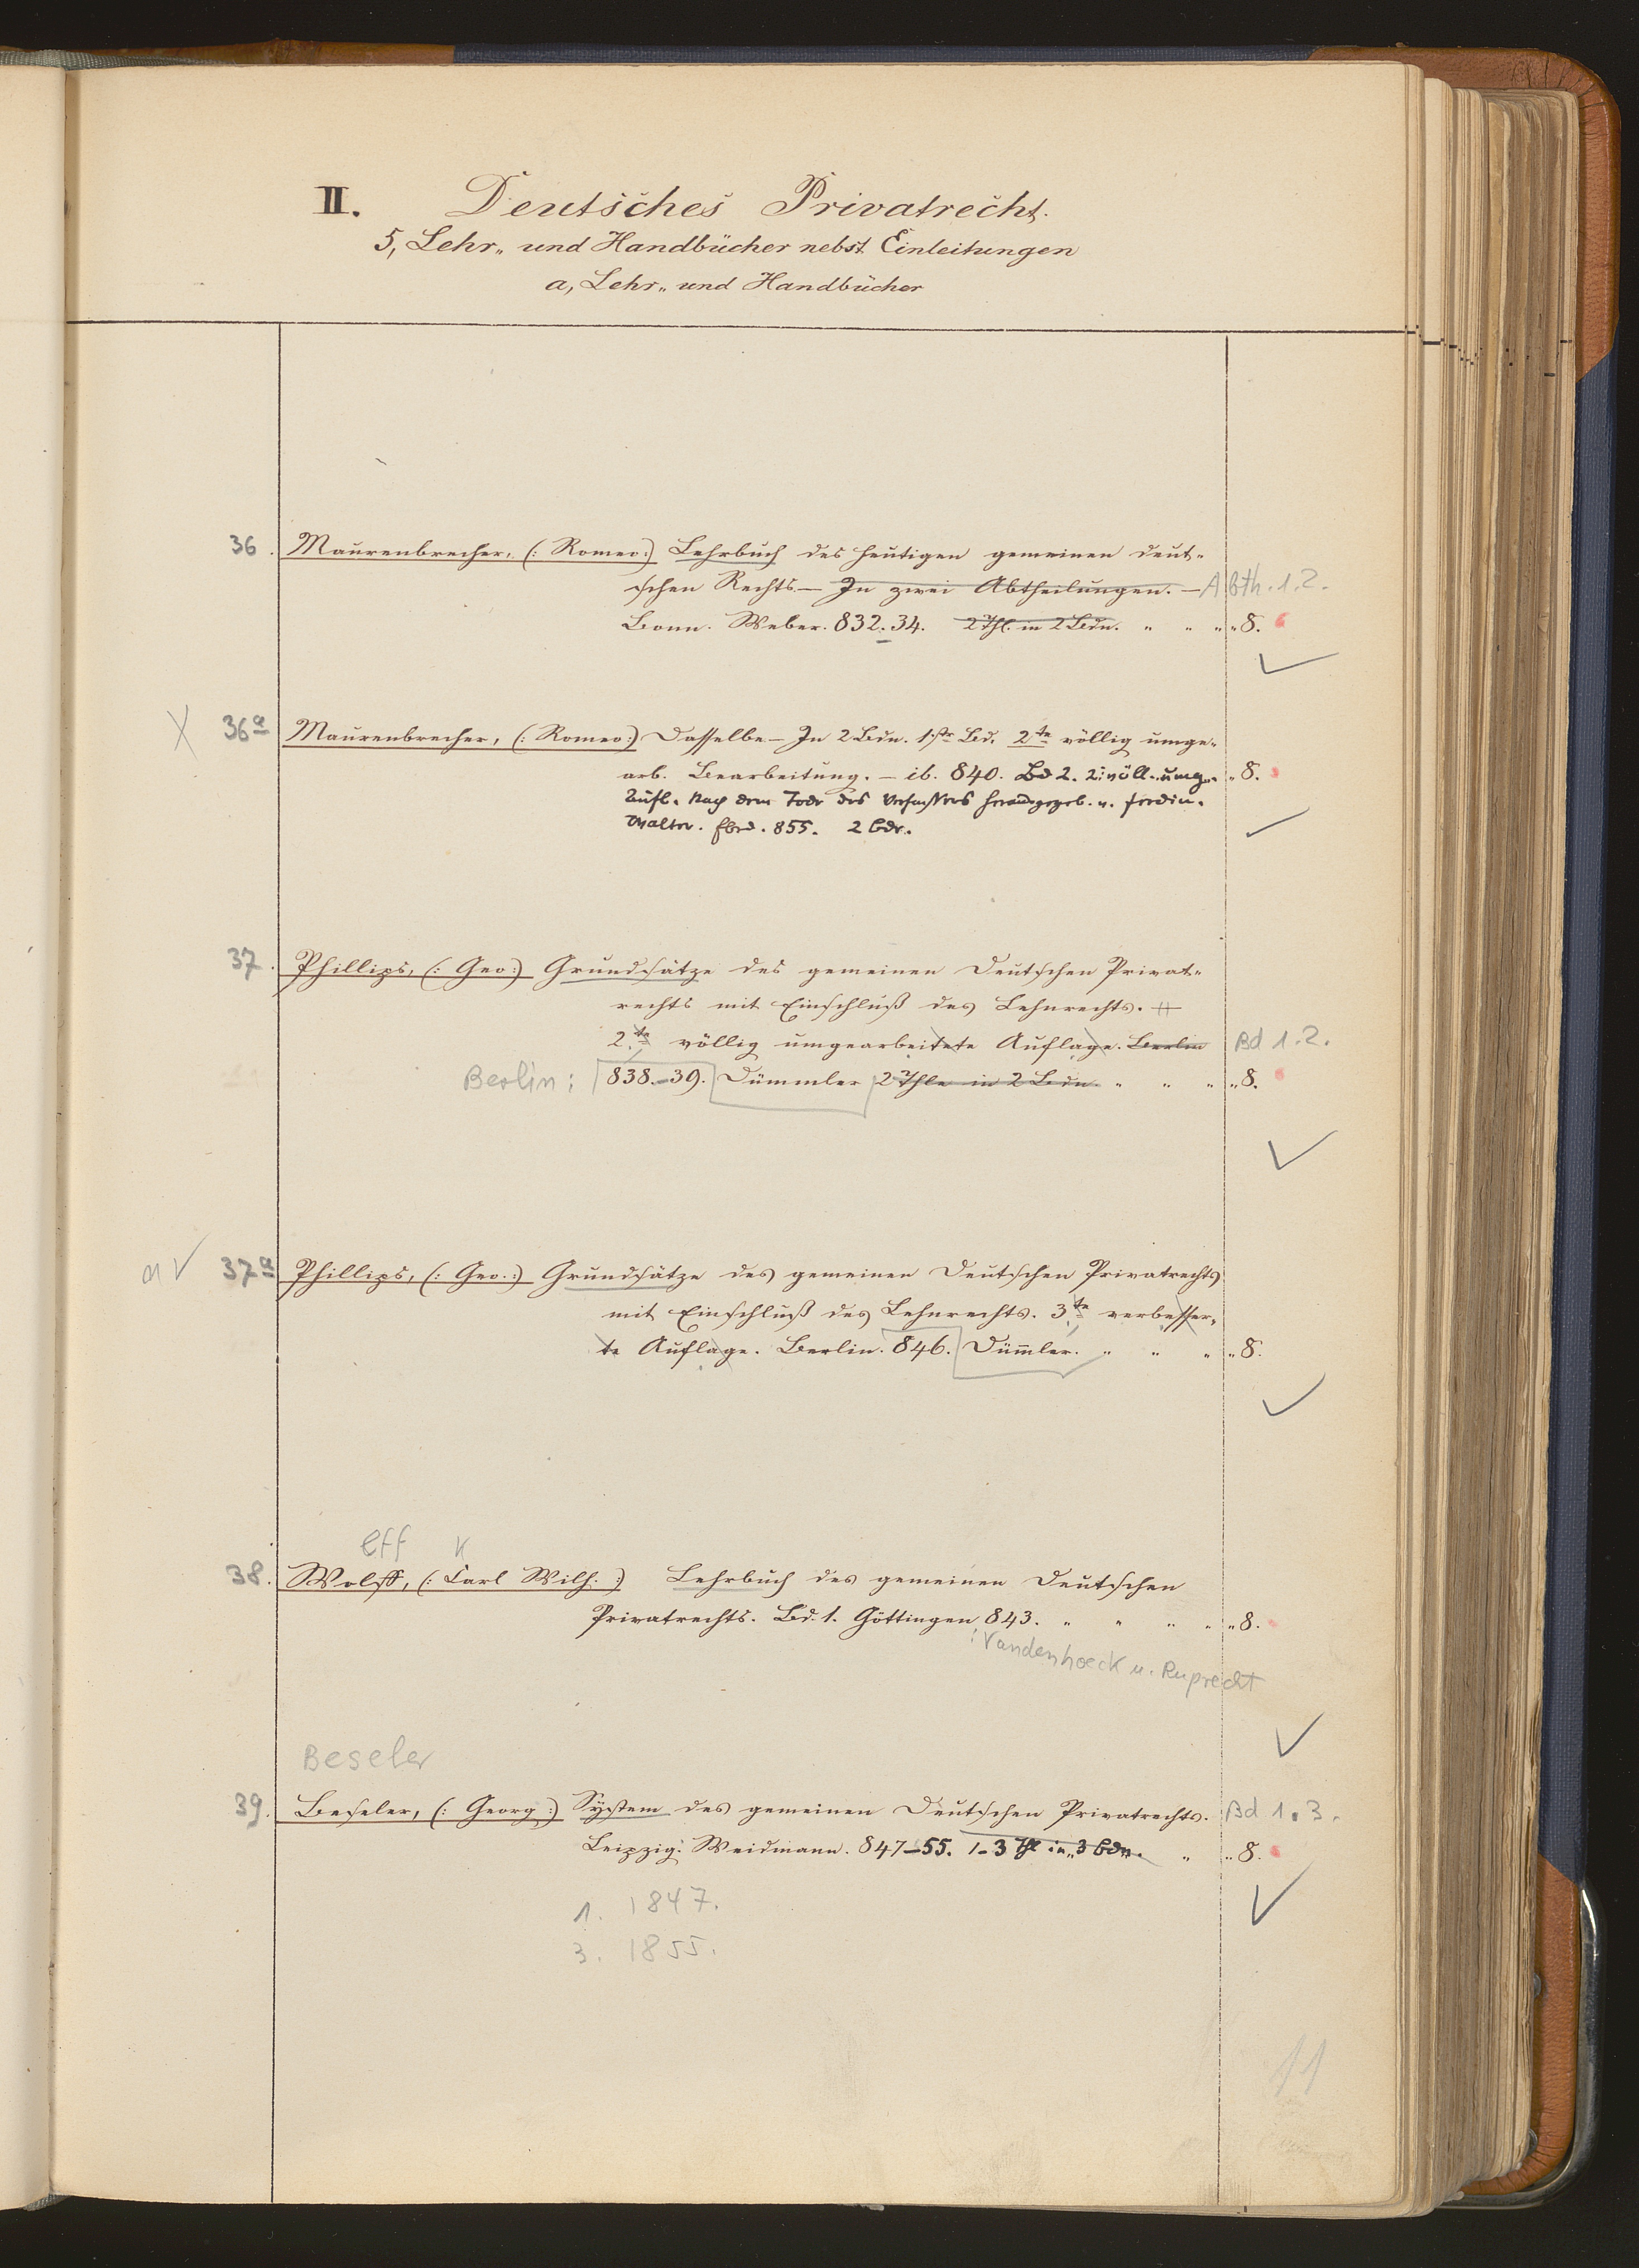 II. Deutsches Privatrecht.
5, Lehr„ und Handbücher nebst Einleitungen
a, Lehr„ und Handbücher
36. Maurenbrecher, (: Romeo:) Lehrbuch des heutigen gemeinen deut-
schen Rechts.— In zwei Abtheilungen. — Abth. 1.2.
Bonn. Weber. 832. 34. 2 Thl. in 2 Bdn. " " " " 8.
X 36a Maurenbrecher, (: Romeo:) Dasselbe — In 2 Bdn. 1ster Bd. 2te völlig umge-
arb. Bearbeitung. — ib. 840. Bd 2. 2. völl. umg. " 8.
Aufl. Nach dem Tode des Verfassers herausgegeb. v. Ferdin.
Walter. Ebd. 855. 2 Bde.
37. Phillips, (: Geo:) Grundsätze des gemeinen Deutschen Privat-
rechts mit Einschluß des Lehnrechts.
2te völlig umgearbeitete Auflage. Berlin Bd 1.2.
Berlin: 838.-39. Dümmler 2 Thle in 2 Bdn. " " " " 8.
37a Phillips, (: Geo.:) Grundsätze des gemeinen Deutschen Privatrechts
mit Einschluß des Lehnrechts. 3te verbesser-
te Auflage. Berlin. 846. Dümmler. " " " " 8.
eff K
38. Wolff, (: Carl Wilh. :) Lehrbuch des gemeinen Deutschen
Privatrechts. Bd. 1. Göttingen 843. " " " " " 8.
: Vandenhoeck u. Ruprecht
Beseler
39. Beseler, (: Georg :) System des gemeinen Deutschen Privatrechts. Bd 1.3.
Leipzig. Weidmann. 847-55. 1-3 Thl in 3 Bdn. " " 8.
1. 1847.
3. 1855.
11